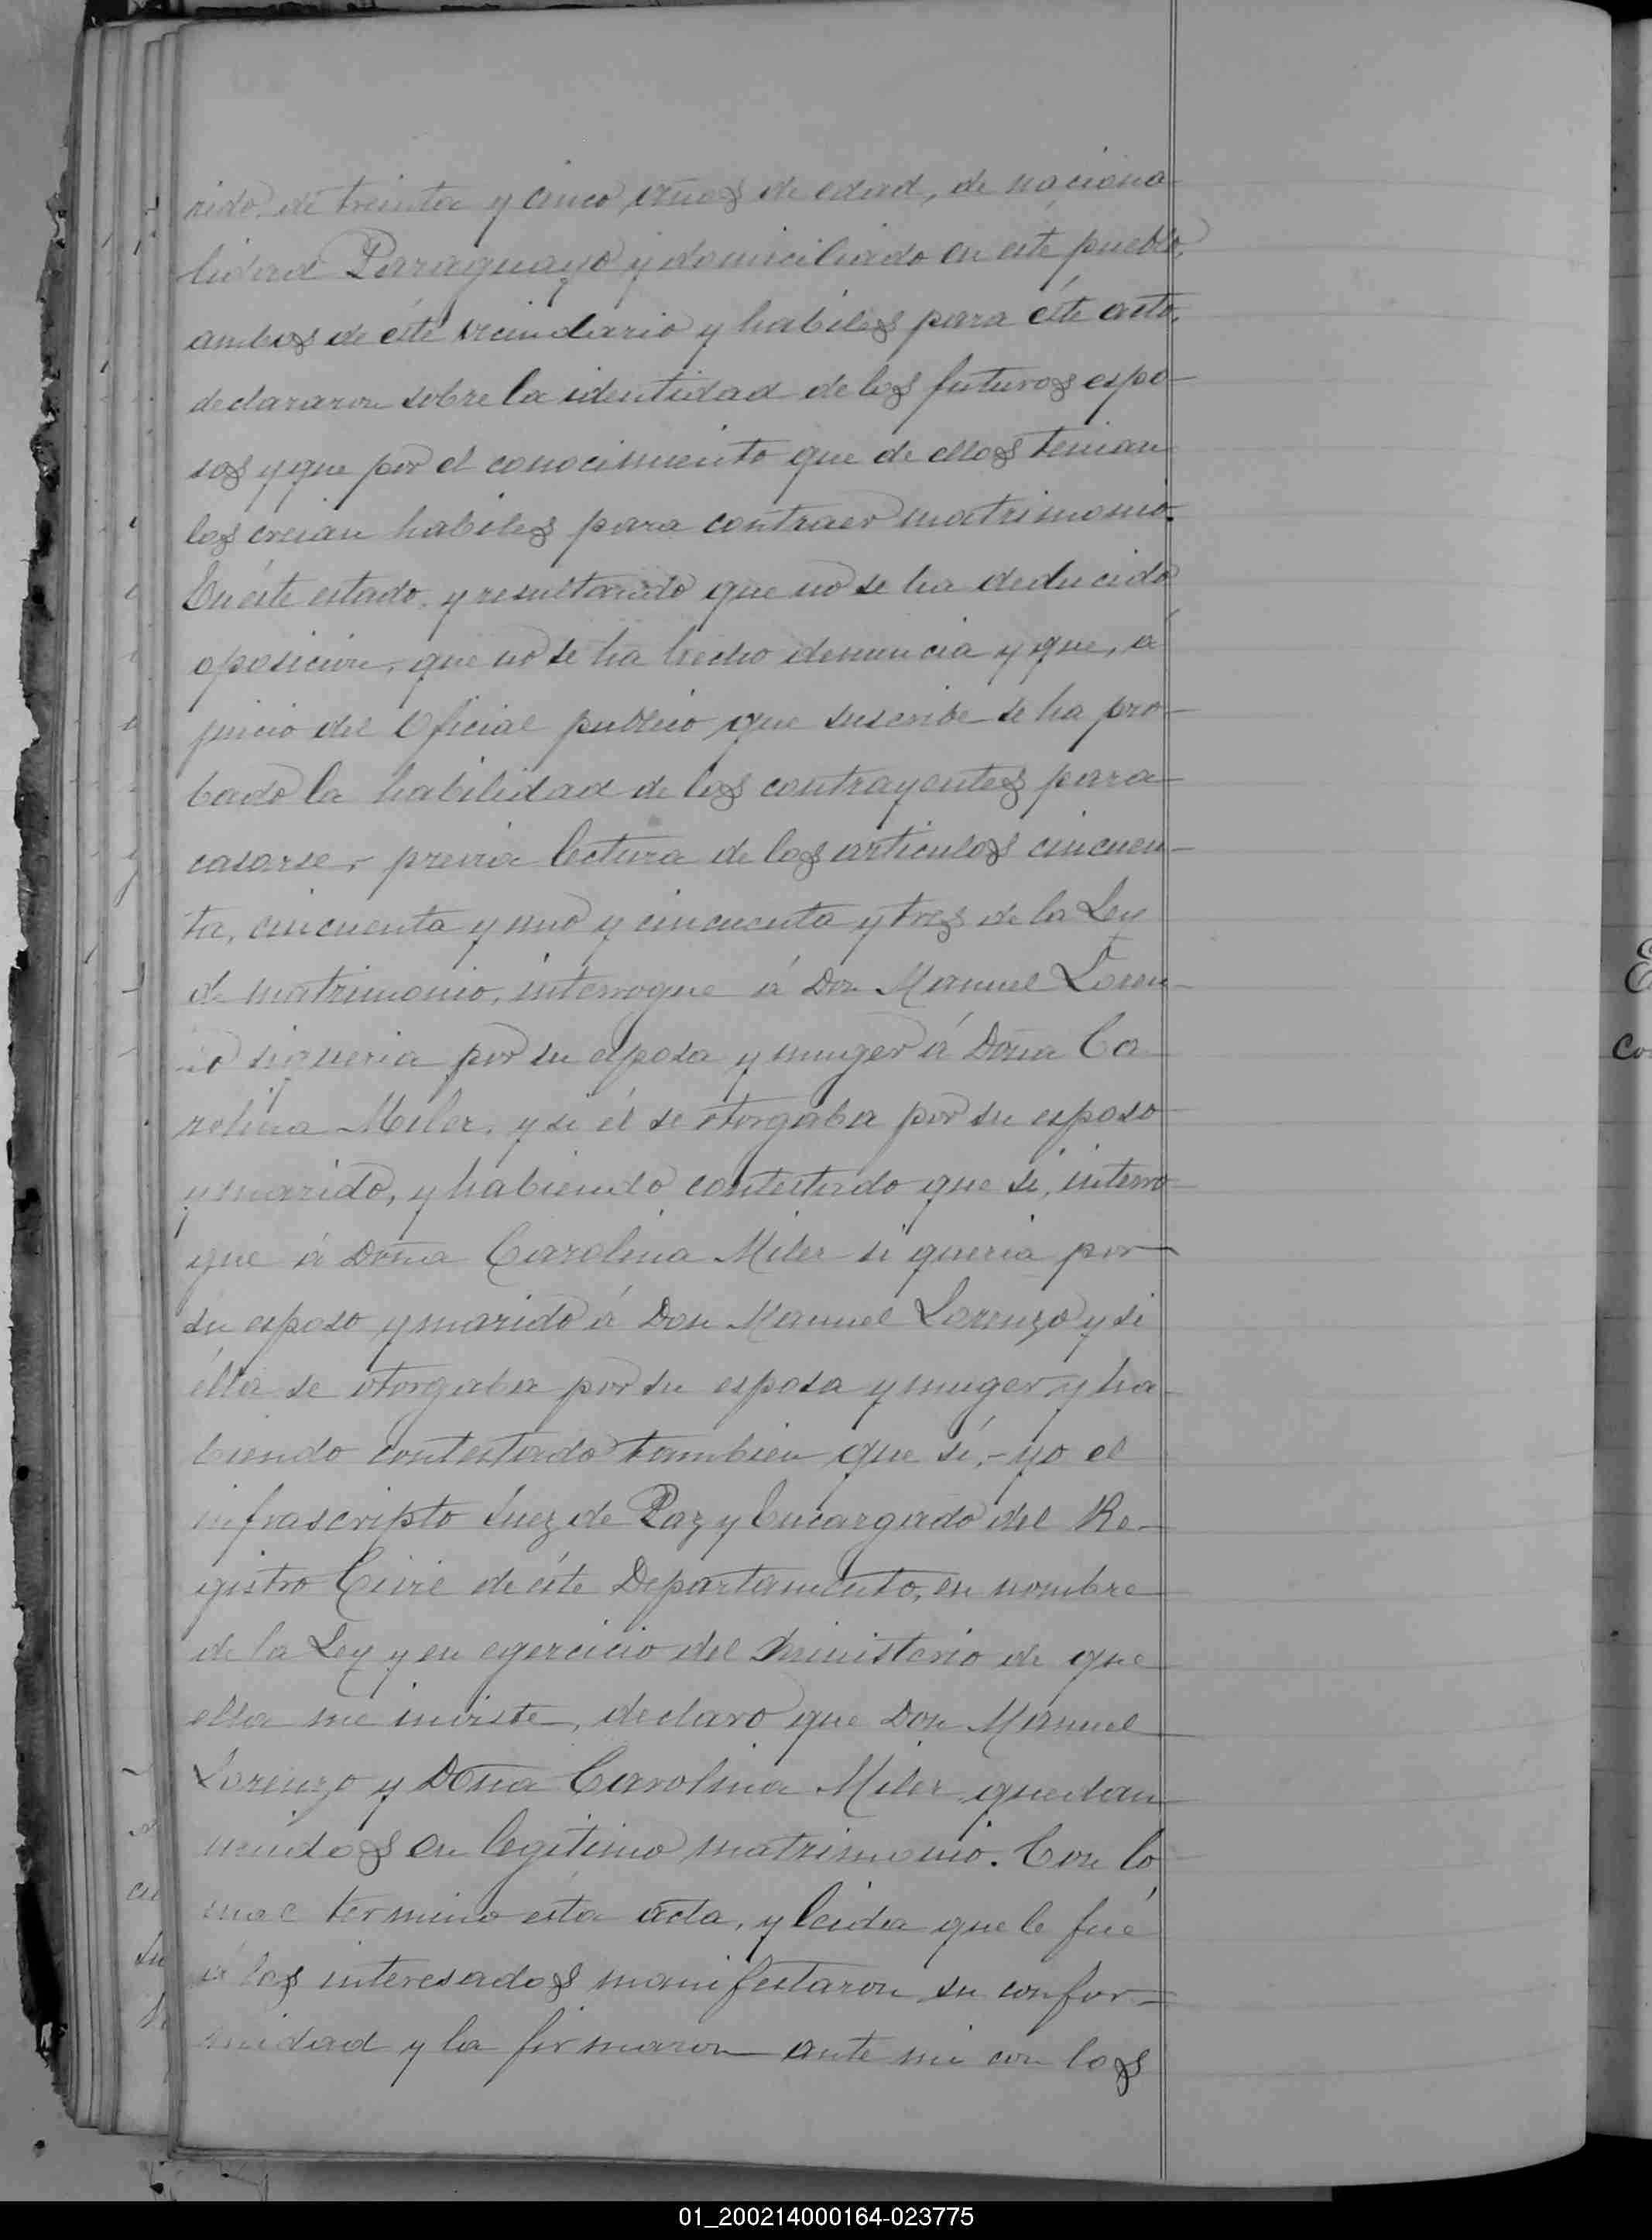 rido, de treinta y cinco años de edad, de naciona-
lidad Paraguayo y domiciliado en este pueblo,
ambos de éste vecindario y habiles para éste acto,
declararon sobre la identidad de los futuros espo-
sos y que por el conocimiento que de ellos tenian
los creian habiles para contraer matrimonio.
En éste estado, y resultando que no se ha deducido
oposicion, que no se ha hecho denuncia y que, á
juicio del Oficial publico que suscribe se ha pro-
bado la habilidad de los contrayentes para
casarse, previa lectura de los articulos cincuen-
ta, cincuenta y uno y cincuenta y tres de la Ley
de matrimonio, interrogue á Don Manuel Loren-
zo si queria por su esposa y muger á Doña Ca
rolina Miler, y si él se otorgaba por su esposo
y marido, y habiendo contestado que si, interro
gue á Doña Carolina Miler si queria por
su esposo y marido á Don Manuel Lorenzo y si
élla se otorgaba por su esposa y muger, y ha-
biendo contestado tambien que sí,- yo el
infrascripto Juez de Paz y Encargado del Re-
gistro Civil de éste Departamento, en nombre
de la Ley y en egercicio del Ministerio de que
ella me inviste, declaro que Don Manuel
Lorenzo y Doña Carolina Miler quedan
unidos en legitimo matrimonio. Con lo
cual termino esta acta, y leida que le fué
á los interesados manifestaron su confor-
midad y la firmaron ante mi con los
01_200214000164-023775